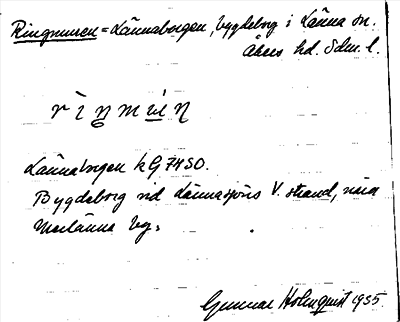 Ringmuren = Lännaborgen, bygdeborg i Länna sn.
Åkers hd. Sdm. l.
Lännaborgen kG7450.
Bygdeborg vid Lännasjöns V. strand, nära
Marlänna by.
Gunnar Holmquist 1935